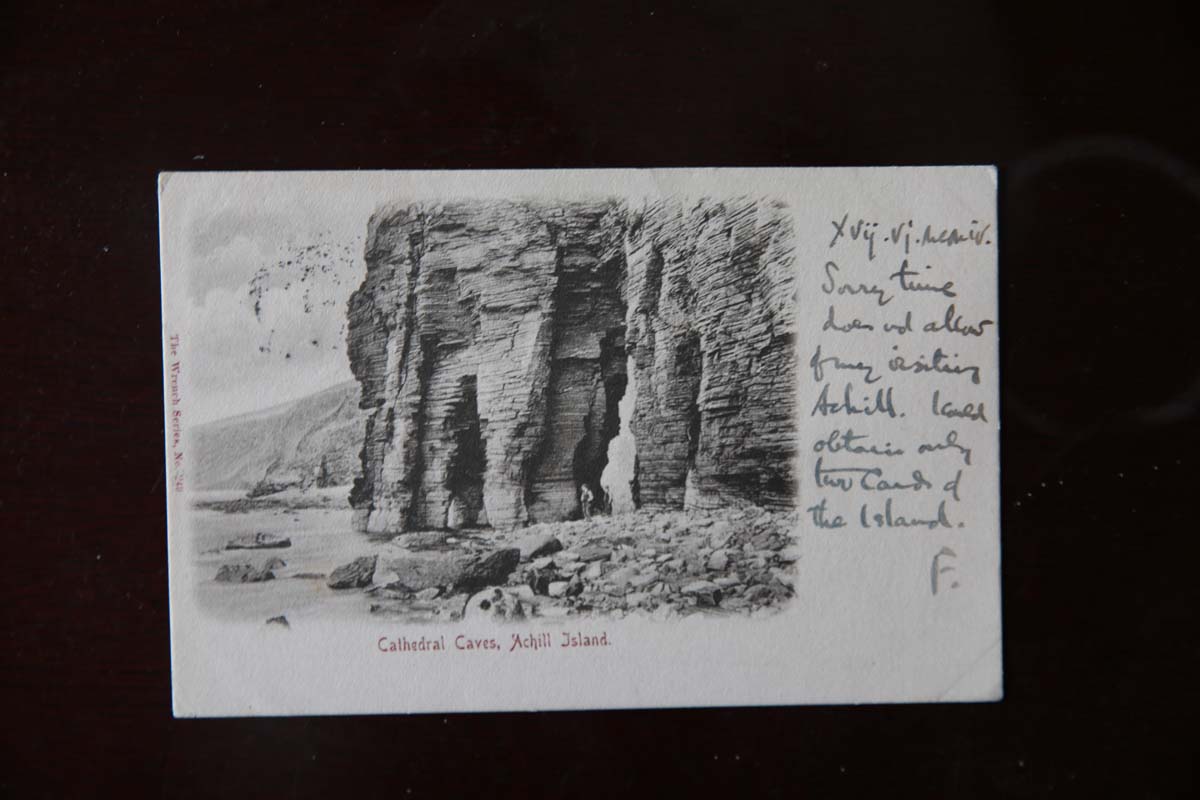 Xvij.vj.mcmiv.
Sorry time
does not allow
of my visiting
Achill. Could
obtain only
two Cards of
the Island.
F.
Cathedral Caves, Achill Island.
The Wrench Series, No. 243